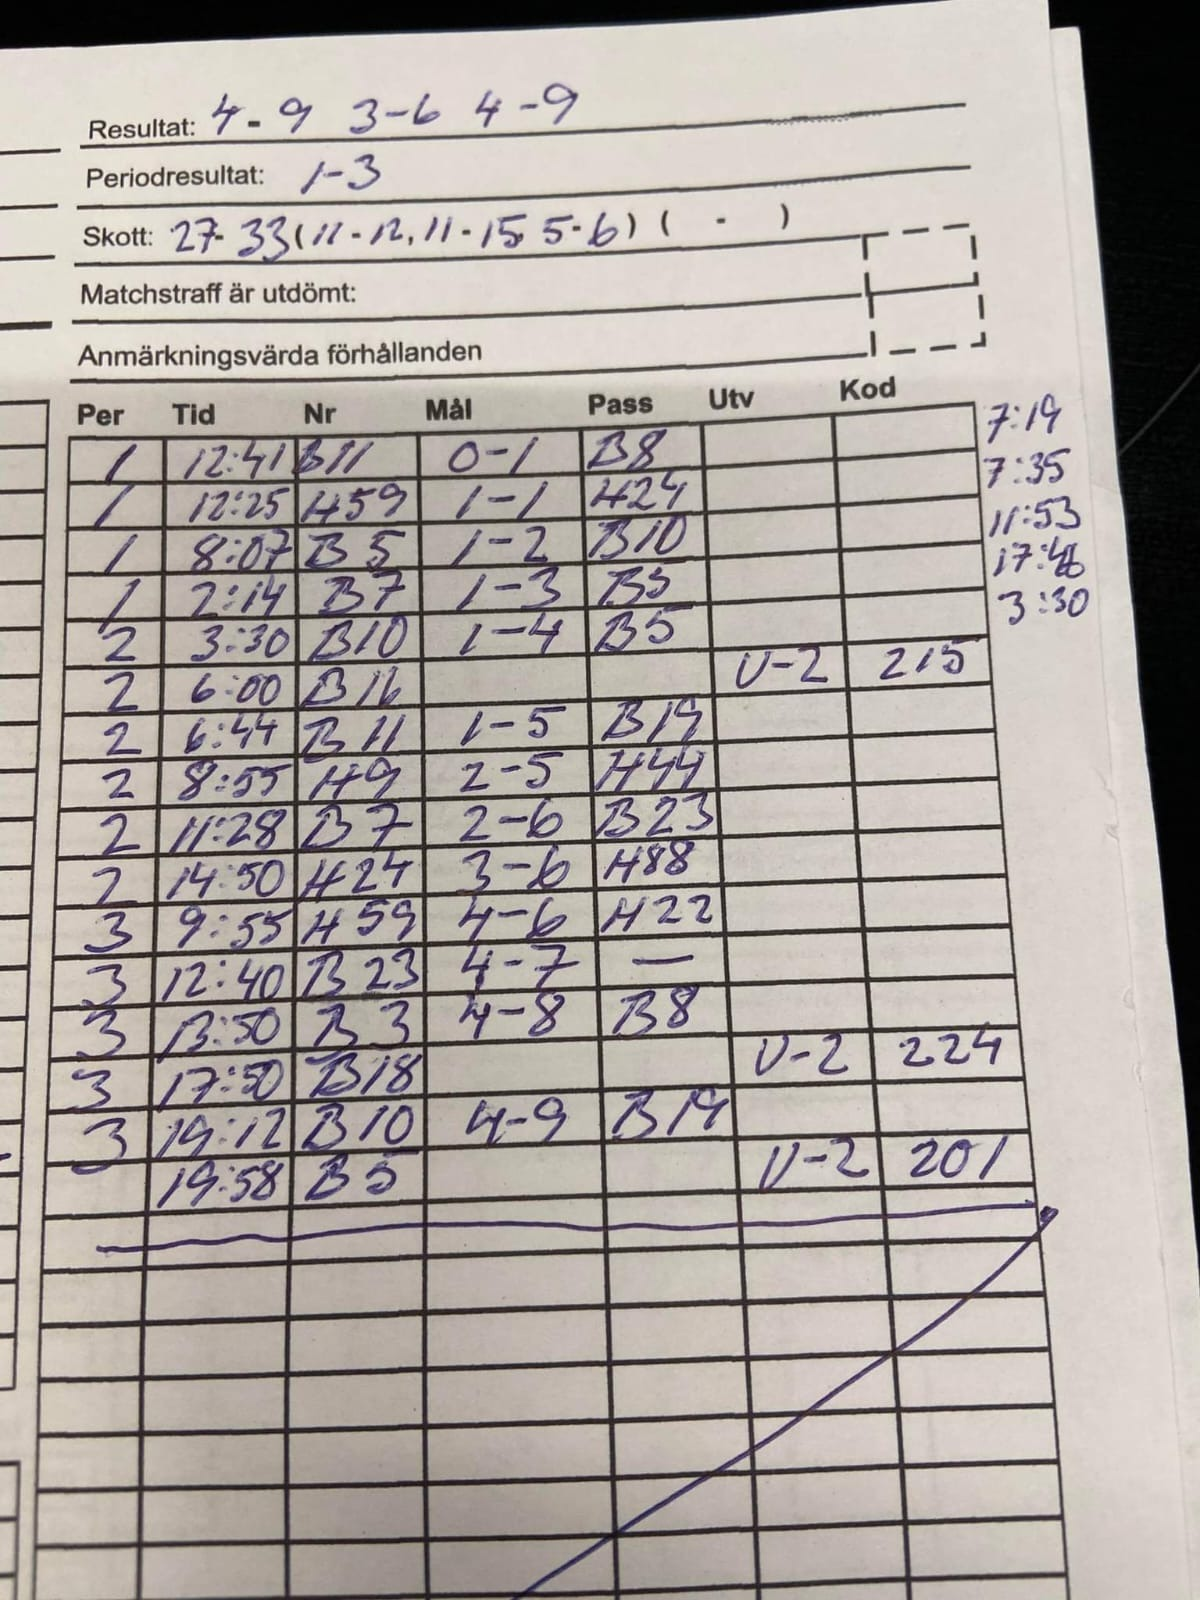 Resultat: 4-9 3-6 4-9
Periodresultat: 1-3
Skott: 27-33(11-12, 11-15, 5-6) ( - )
Matchstraff är utdömt:
Anmärkningsvärda förhållanden
Per Tid Nr Mål Pass Utv Kod
1 12:41 B11 0-1 B8 7:19
1 12:25 H59 1-1 H24 7:35
1 8:07 B5 1-2 B10 11:53
1 2:14 B7 1-3 B5 17:46
2 3:30 B10 1-4 B5 3:30
2 6:00 B16 U-2 215
2 6:44 B11 1-5 B19
2 8:55 H9 2-5 H44
2 11:28 B7 2-6 B23
2 14:50 H24 3-6 H88
3 9:55 H59 4-6 H22
3 12:40 B23 4-7 —
3 13:50 B3 4-8 B8
3 17:50 B18 U-2 224
3 19:12 B10 4-9 B19
19:58 B5 U-2 201